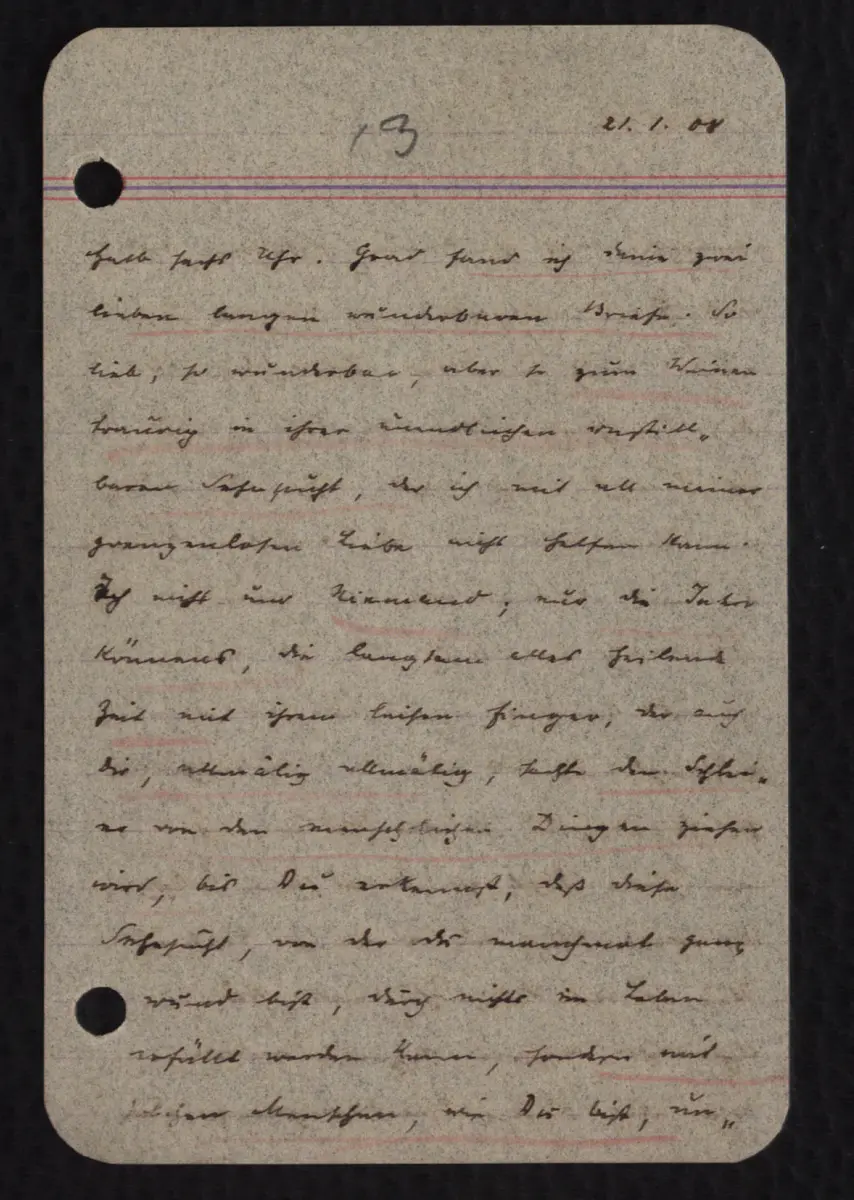 +3
21. 1. 08
Halb sechs Uhr. Grad fand ich deine zwei
lieben langen wunderbaren Briefe. So
lieb, so wunderbar, aber so zum Weinen
traurig in ihrer unendlichen unstill„
baren Sehnsucht, der ich mit all meiner
grenzenlosen Liebe nicht helfen kann.
Ich nicht und Niemand, nur die Jahre
können's, die langsam alles heilende
Zeit mit ihrem leisen Finger, der auch
dir, allmälig allmälig, sachte den Schlei„
er von den menschlichen Dingen ziehen
wird, bis Du erkennst, daß diese
Sehnsucht, von der du manchmal ganz
wund bist, durch nichts im Leben
erfüllt werden kann, sondern mit
solchen Menschen, wie Du bist, un„